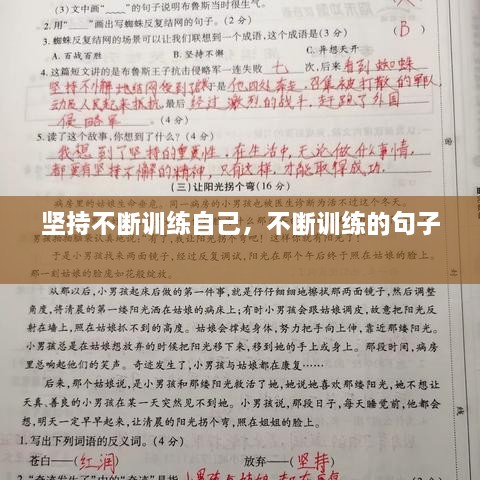 (3)文中"﹏﹏"的句子说明布鲁斯当时很生气。
2.用"——"画出写蜘蛛反复结网的句子。(2分)
3.蜘蛛反复结网的场景可以让我们联想到一个成语,这个成语是( B )
A.百战百胜 B.坚持不懈 C.异想天开
4.这篇短文讲的是布鲁斯王子抗击侵略军一连失败 七 次,后来 看到蜘蛛
坚持不懈地结网
他四处奔走,召集被打散的军队,
动员人民起来抵抗,最后 经过激烈的战斗,赶跑了外国
侵略军 。(4分)
5.读了这个故事,你想到了什么?(4分)
我想到了坚持的重要性,在生活中,无论做什么事情,
都要有坚持不懈的精神,只有这样,才能取得成功.
(三)让阳光拐个弯(16分)
坚持不断训练自己,不断训练的句子
于是小男孩找来两面镜子,经过反复调试,阳光在那个午后终于照在姑娘的
病床上,照在姑娘的脸上,
一刻,姑娘的脸庞如花般绽放。
从那以后,小男孩起床后做的第一件事,就是仔仔细细地擦拭那两面镜子,然后调整
角度,将清晨的第一缕阳光洒在姑娘的病床上;有时小男孩会跟姑娘调皮,故意把阳光反
射在墙上,照在姑娘抓不到的高度。姑娘会撑起身体,努力把手向上伸,靠近那缕阳光。
小男孩总是在姑娘想放弃的时候把阳光移下来,移到她的手上或身上。那段时间,病房
里总响起他们的笑声。奇迹发生了,小男孩与姑娘都在康复……
后来,那个姑娘说,是小男孩和那缕阳光救活了她,她说她喜欢那缕阳光,她不想让
天真、善良的小男孩在某一天突然见不到她。小男孩说,那段日子,每天睡觉前,他都会
想,明天一定早早起来,让清晨的阳光拐个弯,照在姐姐的脸上。
1.写出下列词语的反义词。(4分)
苍白——( 红润 ) 放弃——( 坚持 )